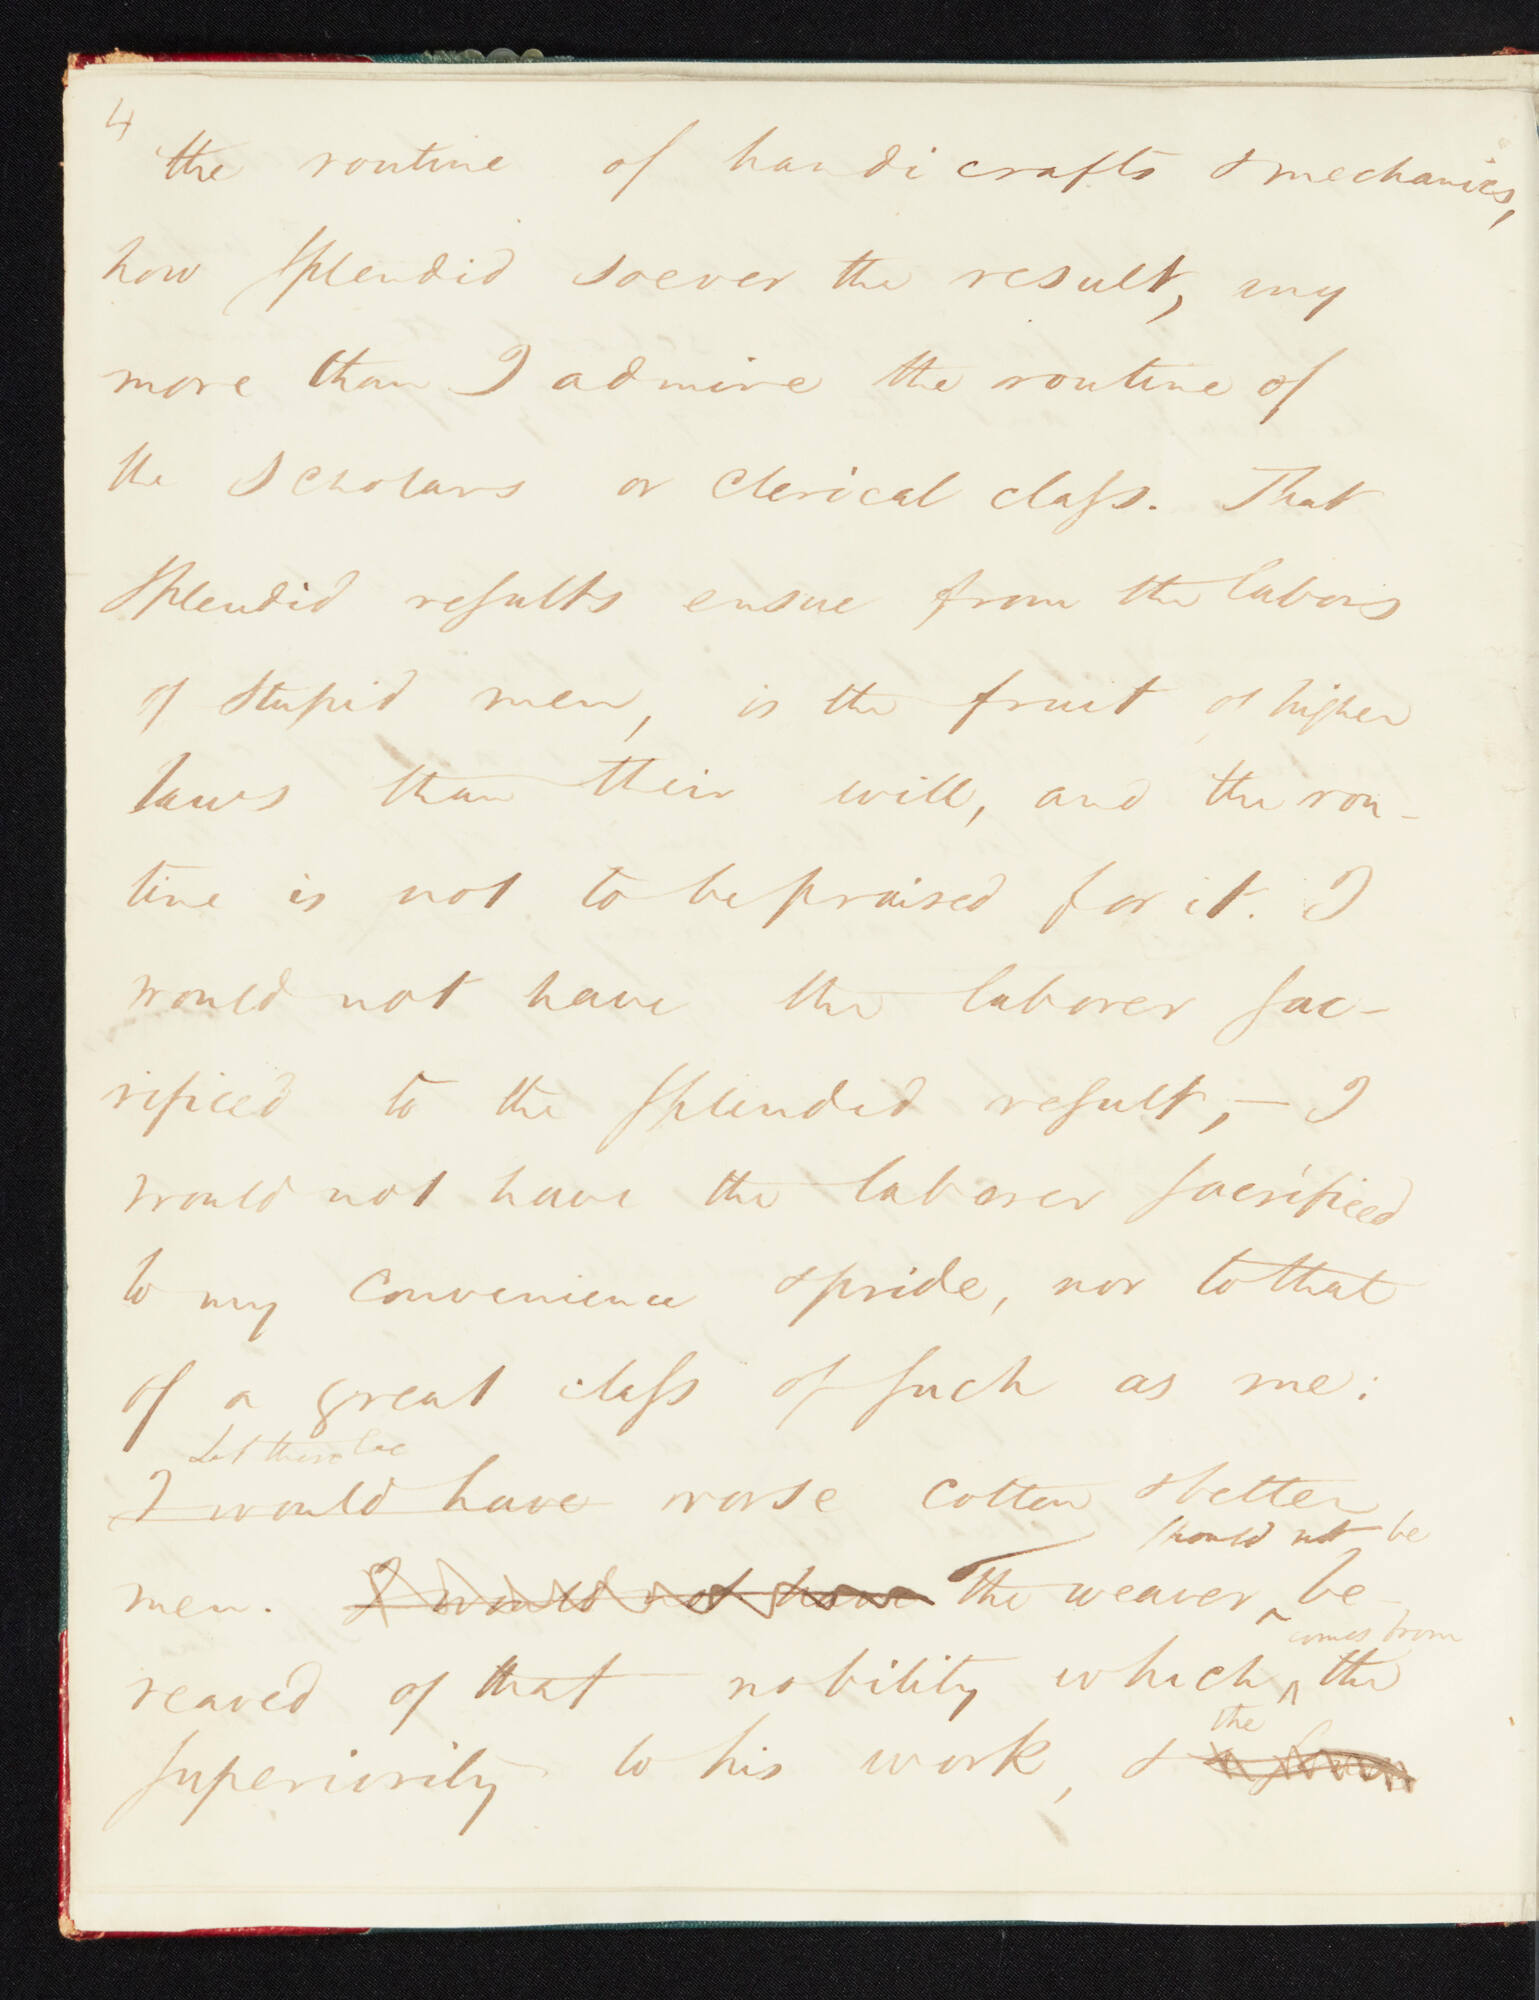 4
the routine of handicrafts & mechanics,
how splendid soever the result, any
more than I admire the routine of
the scholars or clerical class. That
splendid results ensue from the labors
of stupid men, is the fruit of higher
laws than their will, and the rou-
tine is not to be praised for it. I
would not have the laborer sac-
rificed to the splendid result, — I
would not have the laborer sacrificed
to my convenience & pride, nor to that
of a great class of such as me:
Let there be
I would have worse cotton & better
should not be
men. I would not have The weaver ^ be-
comes from
reaved of that nobility which ^ the
the
superiority to his work, &